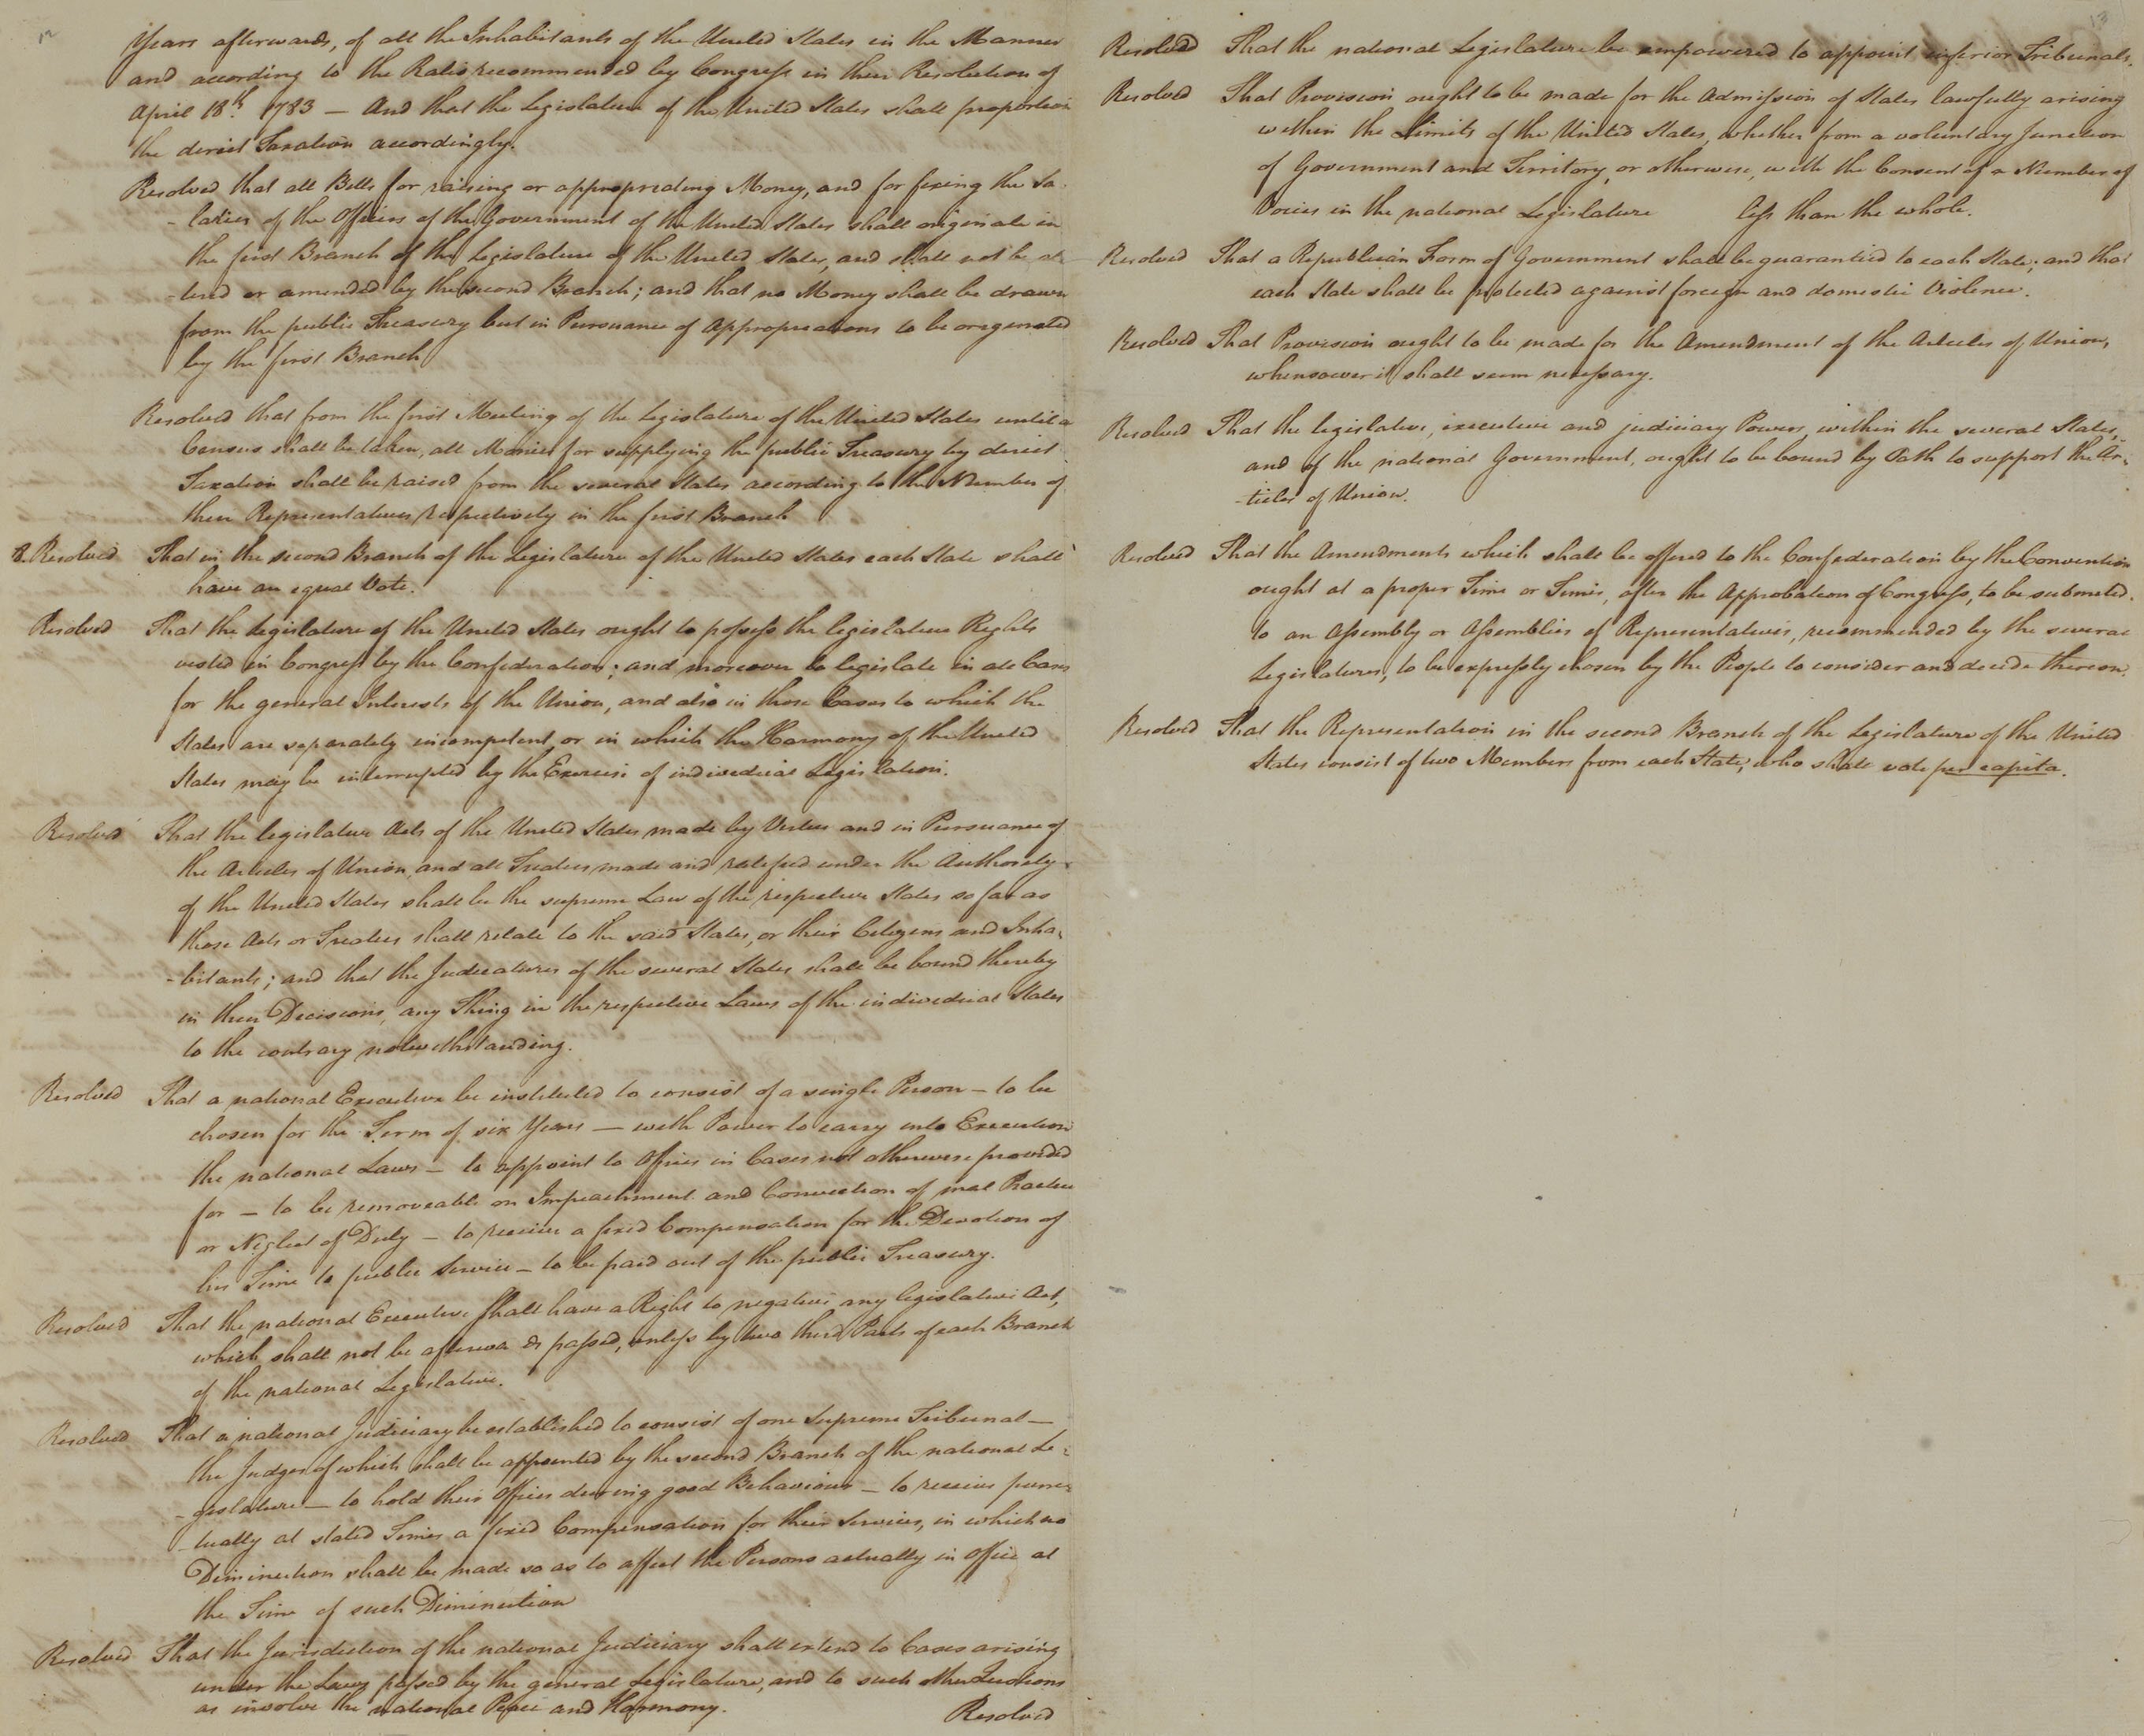 12
Years afterwards, of all the Inhabitants of the United States in the Manner
and according to the Ratio recommended by Congress in their Resolution of
April 18th. 1783 — And that the Legislature of the United States shall proportion
the direct Taxation accordingly.
Resolved that all Bills for raising or appropriating Money, and for fixing the Sa-
-laries of the Officers of the Government of the United States shall originate in
the first Branch of the Legislature of the United States, and shall not be al-
-tered or amended by the second Branch; and that no Money shall be drawn
from the public Treasury but in Pursuance of Appropriations to be originated
by the first Branch
Resolved that from the first Meeting of the Legislature of the United States until a
Census shall be taken, all Monies for supplying the public Treasury by direct
Taxation shall be raised from the several States according to the Number of
their Representatives respectively in the first Branch
8. Resolved That in the second Branch of the Legislature of the United States each State shall
have an equal Vote.
Resolved That the Legislature of the United States ought to possess the legislative Rights
vested in Congress by the Confederation; and moreover to legislate in all Cases
for the general Interests of the Union, and also in those Cases to which the
States are separately incompetent, or in which the Harmony of the United
States may be interrupted by the Exercise of individual Legislation.
Resolved That the legislative Acts of the United States made by Virtue and in Pursuance of
the Articles of Union, and all Treaties made and ratified under the Authority
of the United States shall be the supreme Law of the respective States so far as
those Acts or Treaties shall relate to the said States, or their Citizens and Inha-
-bitants; and that the Judicatures of the several States shall be bound thereby
in their Decisions, any Thing in the respective Laws of the individual States
to the contrary notwithstanding.
Resolved That a national Executive be instituted to consist of a single Person — to be
chosen for the Term of six Years — with Power to carry into Execution
the national Laws — to appoint to Offices in Cases not otherwise provided
for — to be removeable on Impeachment and Conviction of mal Practice
or Neglect of Duty — to receive a fixed Compensation for the Devotion of
his Time to public Service — to be paid out of the public Treasury.
Resolved That the national Executive shall have a Right to negative any legislative Act,
which shall not be afterwards passed, unless by two third Parts of each Branch
of the national Legislative.
Resolved That a national Judiciary be established to consist of one Supreme Tribunal —
the Judges of which shall be appointed by the second Branch of the national Le-
-gislature — to hold their Offices during good Behaviour — to receive punc-
-tually at stated Times a fixed Compensation for their Services, in which no
Diminution shall be made so as to affect the Persons actually in Office at
the Time of such Diminution
Resolved That the Jurisdiction of the national Judiciary shall extend to Cases arising
under the Laws passed by the general Legislature, and to such other Questions
as involve the national Peace and Harmony.
Resolved
13
Resolved That the national Legislature be empowered to appoint inferior Tribunals.
Resolved That Provision ought to be made for the Admission of States lawfully arising
within the Limits of the United States, whether from a voluntary Junction
of Government and Territory, or otherwise, with the Consent of a Number of
Voices in the national Legislature less than the whole.
Resolved That a Republican Form of Government shall be guarantied to each State; and that
each State shall be protected against foreign and domestic Violence.
Resolved That Provision ought to be made for the Amendment of the Articles of Union,
whensoever it shall seem necessary.
Resolved That the legislative, executive and judiciary Powers, within the several States,
and of the national Government, ought to be bound by Oath to support the Ar-
-ticles of Union.
Resolved That the Amendments which shall be offered to the Confederation by the Convention
ought at a proper Time or Times, after the Approbation of Congress, to be submitted
to an Assembly or Assemblies of Representatives, recommended by the several
Legislatures, to be expressly chosen by the People to consider and decide thereon.
Resolved That the Representation in the second Branch of the Legislature of the United
States consist of two Members from each State, who shall vote per capita.